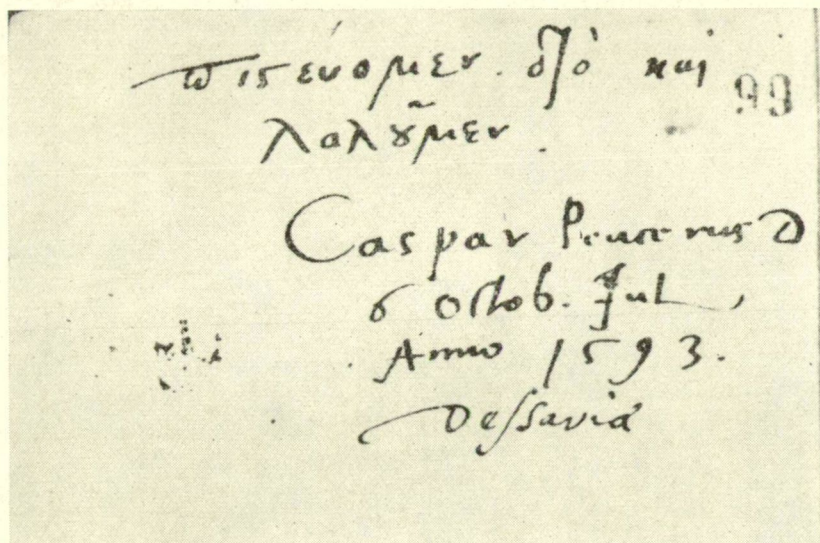 πιϛεύομεν. διὸ καὶ 99
λαλȣ͂μεν.
Caspar Peucerus D
6 Octob. Jul.
Anno 1593.
Dessaviæ